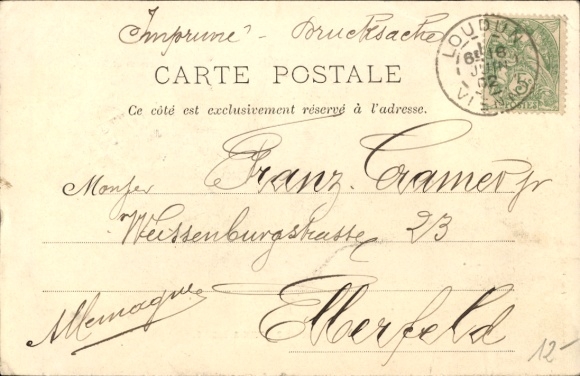 Imprimé - Drucksache
LOUDUN
VIENNE
CARTE POSTALE
Ce côté est exclusivement réservé à l'adresse.
Monsier Franz Cramer jr
Weissenburgstrasse 23
Allemagne
Elberfeld
12-